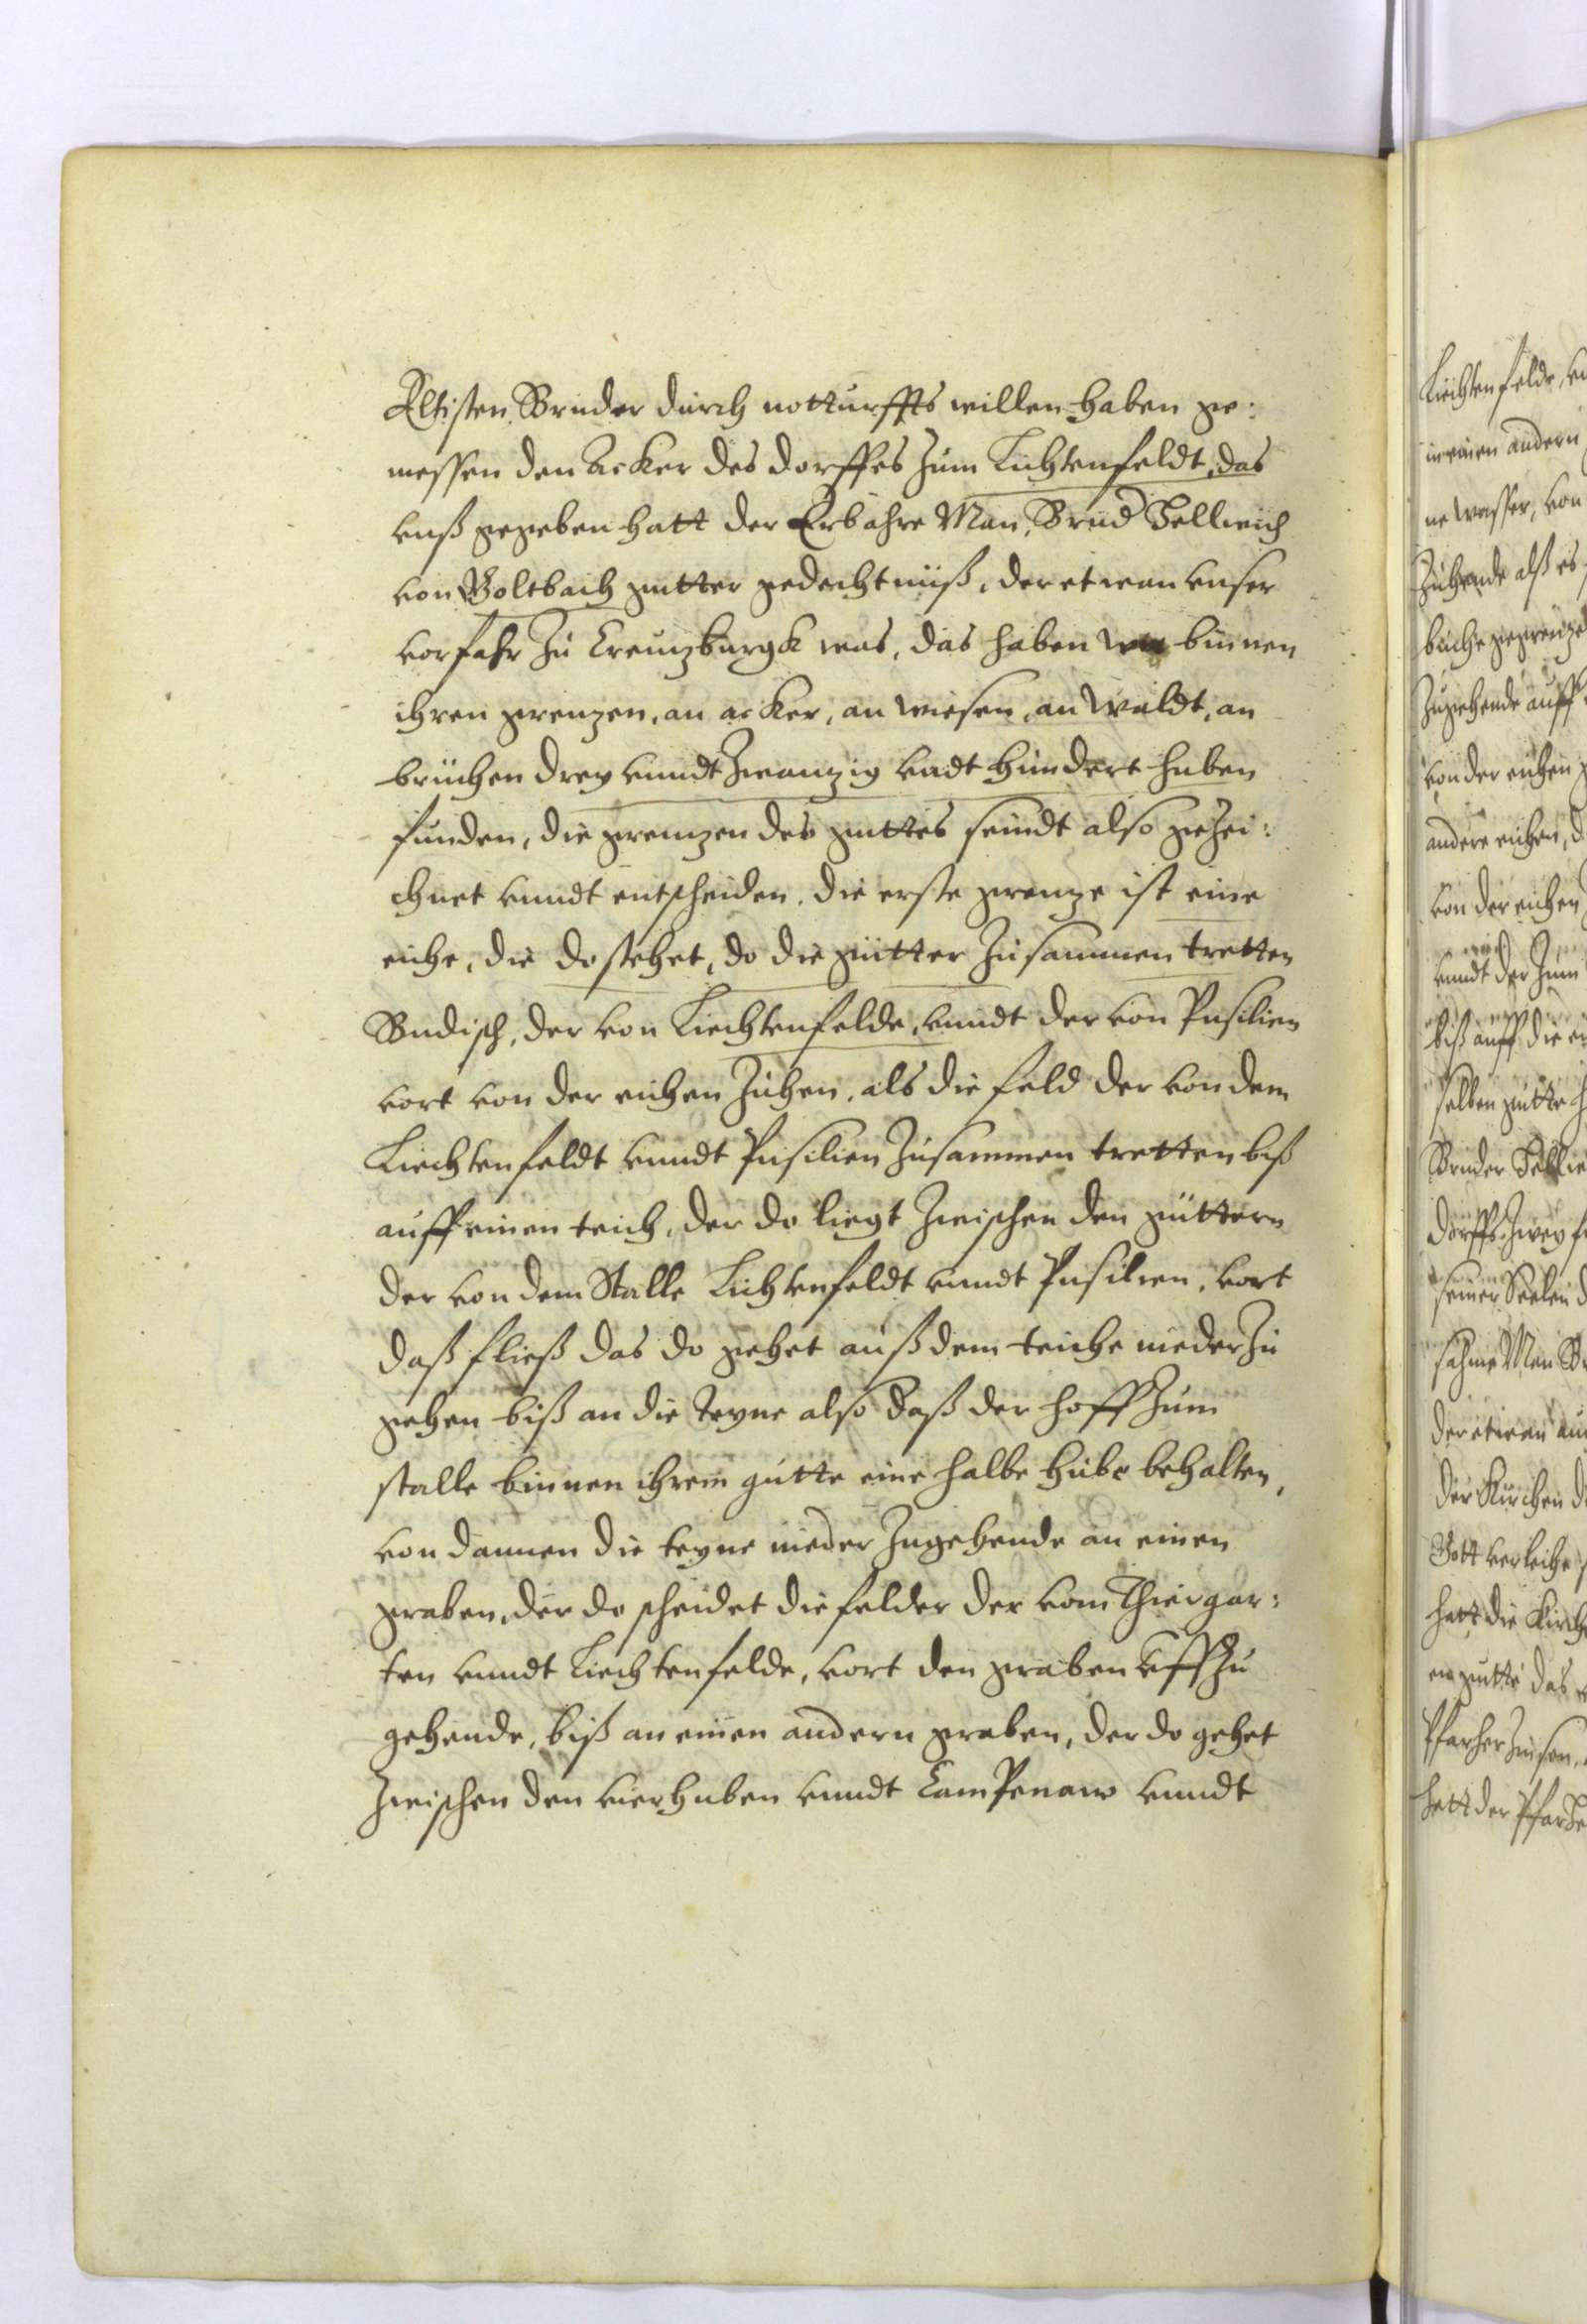 Altisten Bruder durch notturffts willen haben ge:
messen den Acker des dorffes zum Lichtenfeldt, das
vnß gegeben hatt der Erbahre Man, Brud Vellreich
von Goltbach gutter gedechtnüß, der etwan vnser
vorfahr zu Creuzburgk was, das haben wir binnen
ihren grenzen, an acker, an wiesen, an Waldt, an
brüchen drey vnndt zwanzig vndt hundert huben
funden, die grenzen des guttes seindt also gezei:
chnet vnndt entscheiden. die erste grenze ist eine
eiche, die do stehet, do die gütter zusammen tretten
Sudisch, der von Liechtenfelde, vnndt der von Pusilien
vort von der eichen zuhen, als die feld der von dem
Liechtenfeldt vnndt Pusilien zusammen tretten biß
auff einen teich, der do liegt zwischen den güttern
der von dem Stalle Lichtenfeldt vnndt Pusilien, vort
daß fließ das do gehet auß dem teiche nieder zu
gehen biß an die Feyne also daß der hoff zum
stalle binnen ihrem gutte eine halbe hube behalten,
von dannen die feyne nieder zugehende an einen
graben, der do scheidet die felder der vom Thiergar:
ten vnndt Liechtenfelde, vort den graben vff zu
gehende, biß an einen andern graben, der do gehet
zwischen den vierhuben vnndt Campenaw vnndt
Liechtenfelde,
in einen andern
ne wasser, von
zuhende alß es
buche gegrenze
zugehende auff
von der eichen
andere eichen,
von der eichen
vnndt der zum
biß auff die
selben gutte
Bruder
dorffs zwey
seiner Seelen
sahme Man
der etwan
der Kirchen
Gott verleihe
hatt die Kirche
em gutte das
Pfarher zinsen,
hatt der Pfarher